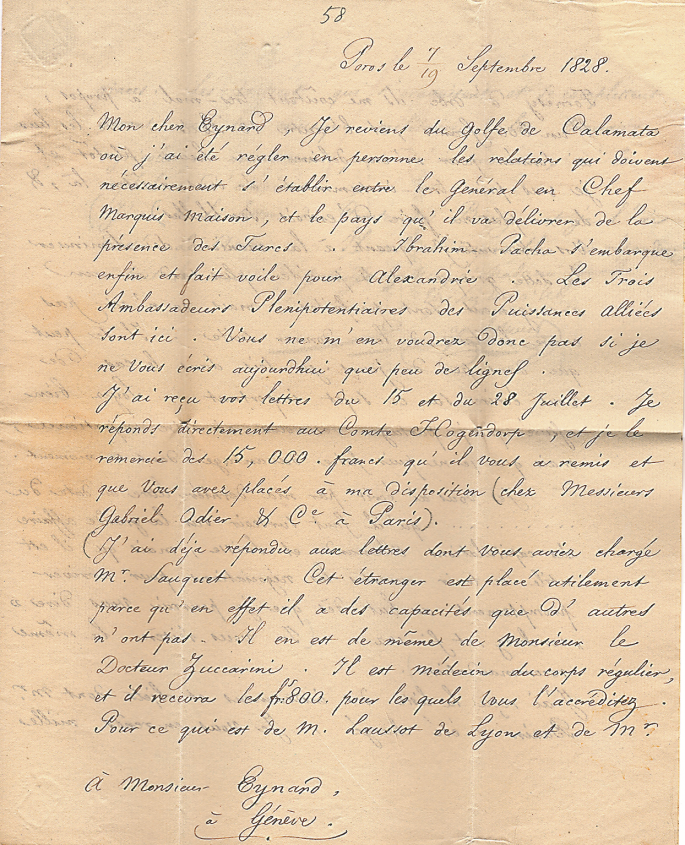 58
Poros le 7/19 Septembre 1828.
Mon cher Eynard, Je reviens du Golfe de Calamata
où j'ai été régler en personne les relations qui doivent
nécessairement s'établir entre le Général en Chef
Marquis Maison, et le pays qu'il va délivrer de la
présence des Turcs Ibrahim-Pacha s'embarque
enfin et fait voile pour Alexandrie. Les Trois
Ambassadeurs Plénipotentiaires des Puissances Alliées
sont ici. Vous ne m'en voudrez donc pas si je
ne Vous écris aujourdhui que peu de lignes.
J'ai reçu vos lettres du 15 et du 28 Juillet. Je
réponds directement au Comte Hogendorp, et je le
remercie des 15,000. francs qu'il vous a remis et
que Vous avez placés à ma disposition (chez Messieurs
Gabriel Odier & Ce à Paris).
(J'ai déja répondu aux lettres dont vous aviez chargé
Mr. Sauquet. Cet étranger est placé utilement
parce qu'en effet il a des capacités que d'autres
n'ont pas. Il en est de même de Monsieur le
Docteur Zuccarini. Il est médecin du corps régulier,
et il recevra les fr.800. pour les quels Vous l'accréditez.
Pour ce qui est de M. Laussot de Lyon et de Mr.
À Monsieur Eynard,
à Genève.